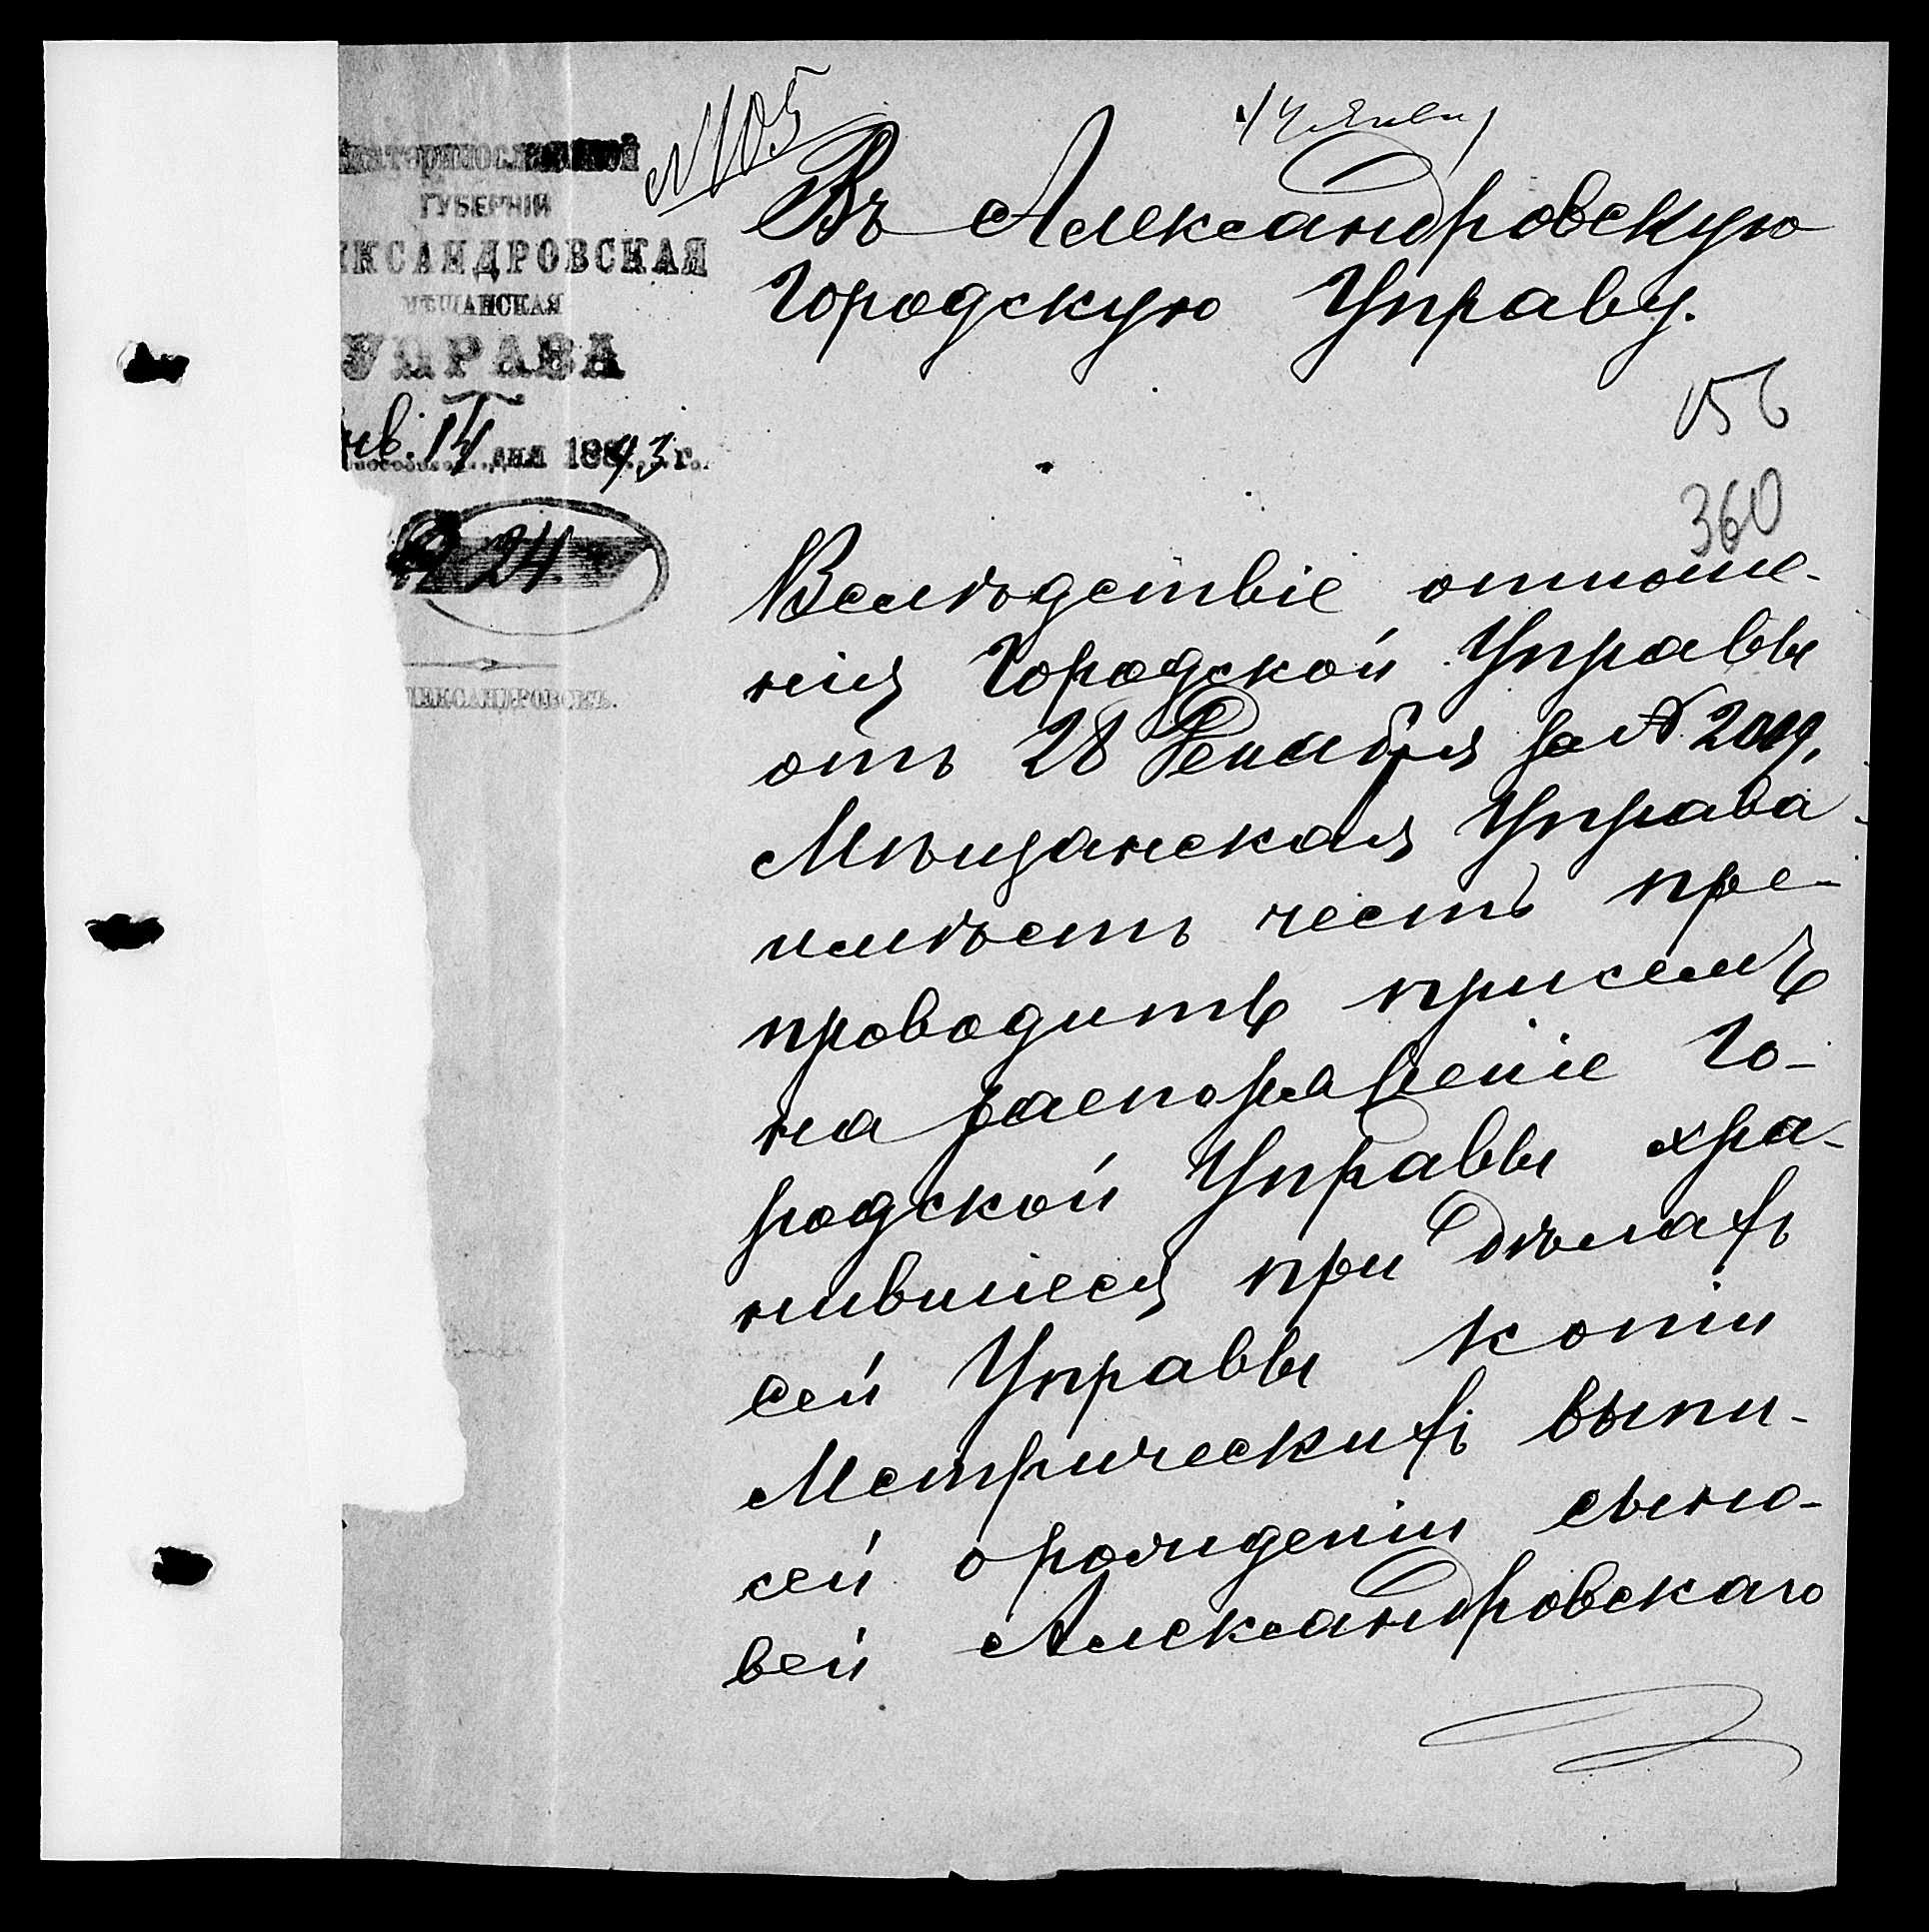 № 105
14 Янв
Екатеринославской
ГУБЕРНІИ
АЛЕКСАНДРОВСКАЯ
МѢЩАНСКАЯ
УПРАВА
Янв. 14 дня 1893 г.
№ 24.
АЛЕКСАНДРОВСКЪ.
Въ Александровскую
Городскую Управу.
156
360
Вслѣдствіе отноше-
нія Городской Управы
отъ 28 Декабря за №
Мѣщанская Управа
имѣетъ честь пре-
проводить присемъ
на распоряженіе Го-
родской Управы хра-
нившіеся при дѣлахъ
сей Управы копіи
Метрическихъ выпи-
сей о рожденіи сыно-
вей Александровскаго